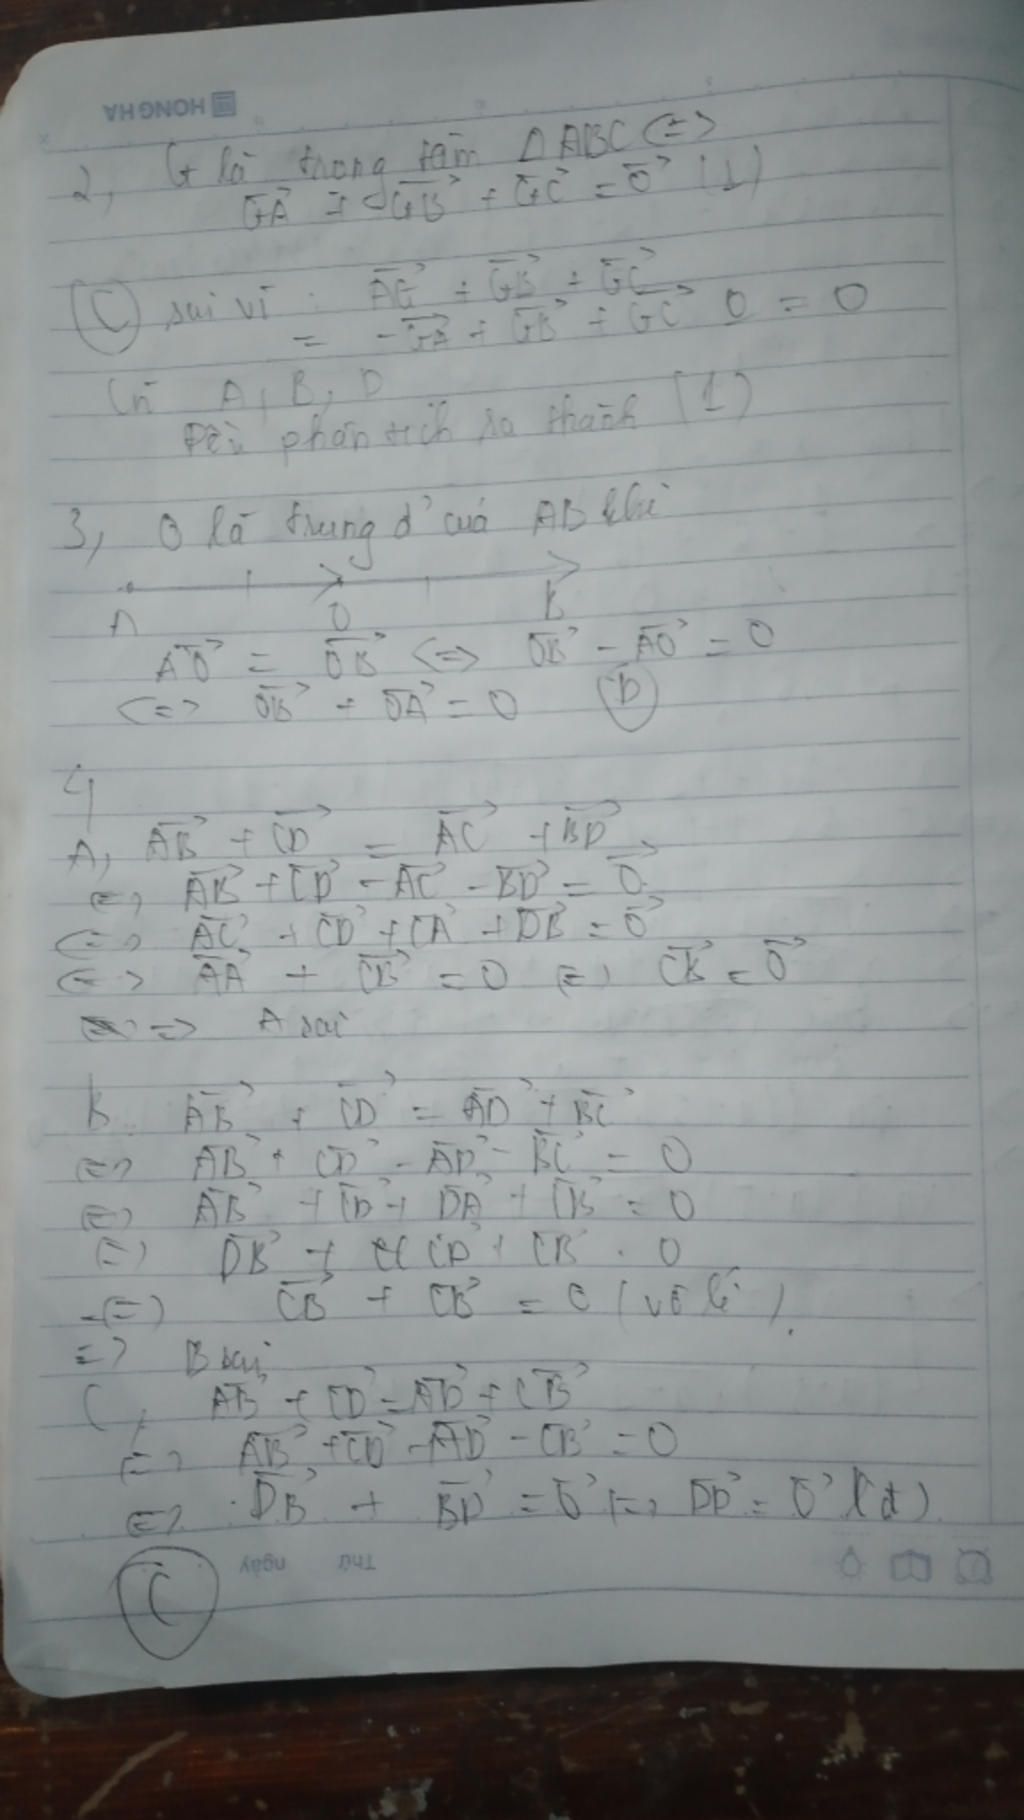 HONG HA
2, G là trọng tâm ΔABC <=>
GA⃗ + GB⃗ + GC⃗ = 0⃗ (1)
(C) sai vì : AG⃗ + GB⃗ + GC⃗
= -GA⃗ + GB⃗ + GC⃗ 0 = 0
Còn A, B, D
Đều phân tích ra thành (1)
3, O là trung đ' của AB khi
A O B
AO⃗ = OB⃗ <=> OB⃗ - AO⃗ = 0
<=> OB⃗ + OA⃗ = 0 (D)
4
A, AB⃗ + CD⃗ = AC⃗ + BD⃗
<=> AB⃗ + CD⃗ - AC⃗ - BD⃗ = 0⃗
<=> AC⃗ + CD⃗ + CA⃗ + DB⃗ = 0⃗
<=> AA⃗ + CB⃗ = 0 <=> CB⃗ = 0⃗
=> A sai
B. AB⃗ + CD⃗ = AD⃗ + BC⃗
<=> AB⃗ + CD⃗ - AD⃗ - BC⃗ = 0
<=> AB⃗ + CD⃗ + DA⃗ + CB⃗ = 0
<=> DB⃗ + CD⃗ + CB⃗ = 0
<=> CB⃗ + CB⃗ = 0 (vô lí).
=> B sai
C, AB⃗ + CD⃗ = AD⃗ + CB⃗
<=> AB⃗ + CD⃗ - AD⃗ - CB⃗ = 0
<=> DB⃗ + BD⃗ = 0⃗ <=> DD⃗ = 0⃗ (đ)
Thứ ngày
(C)